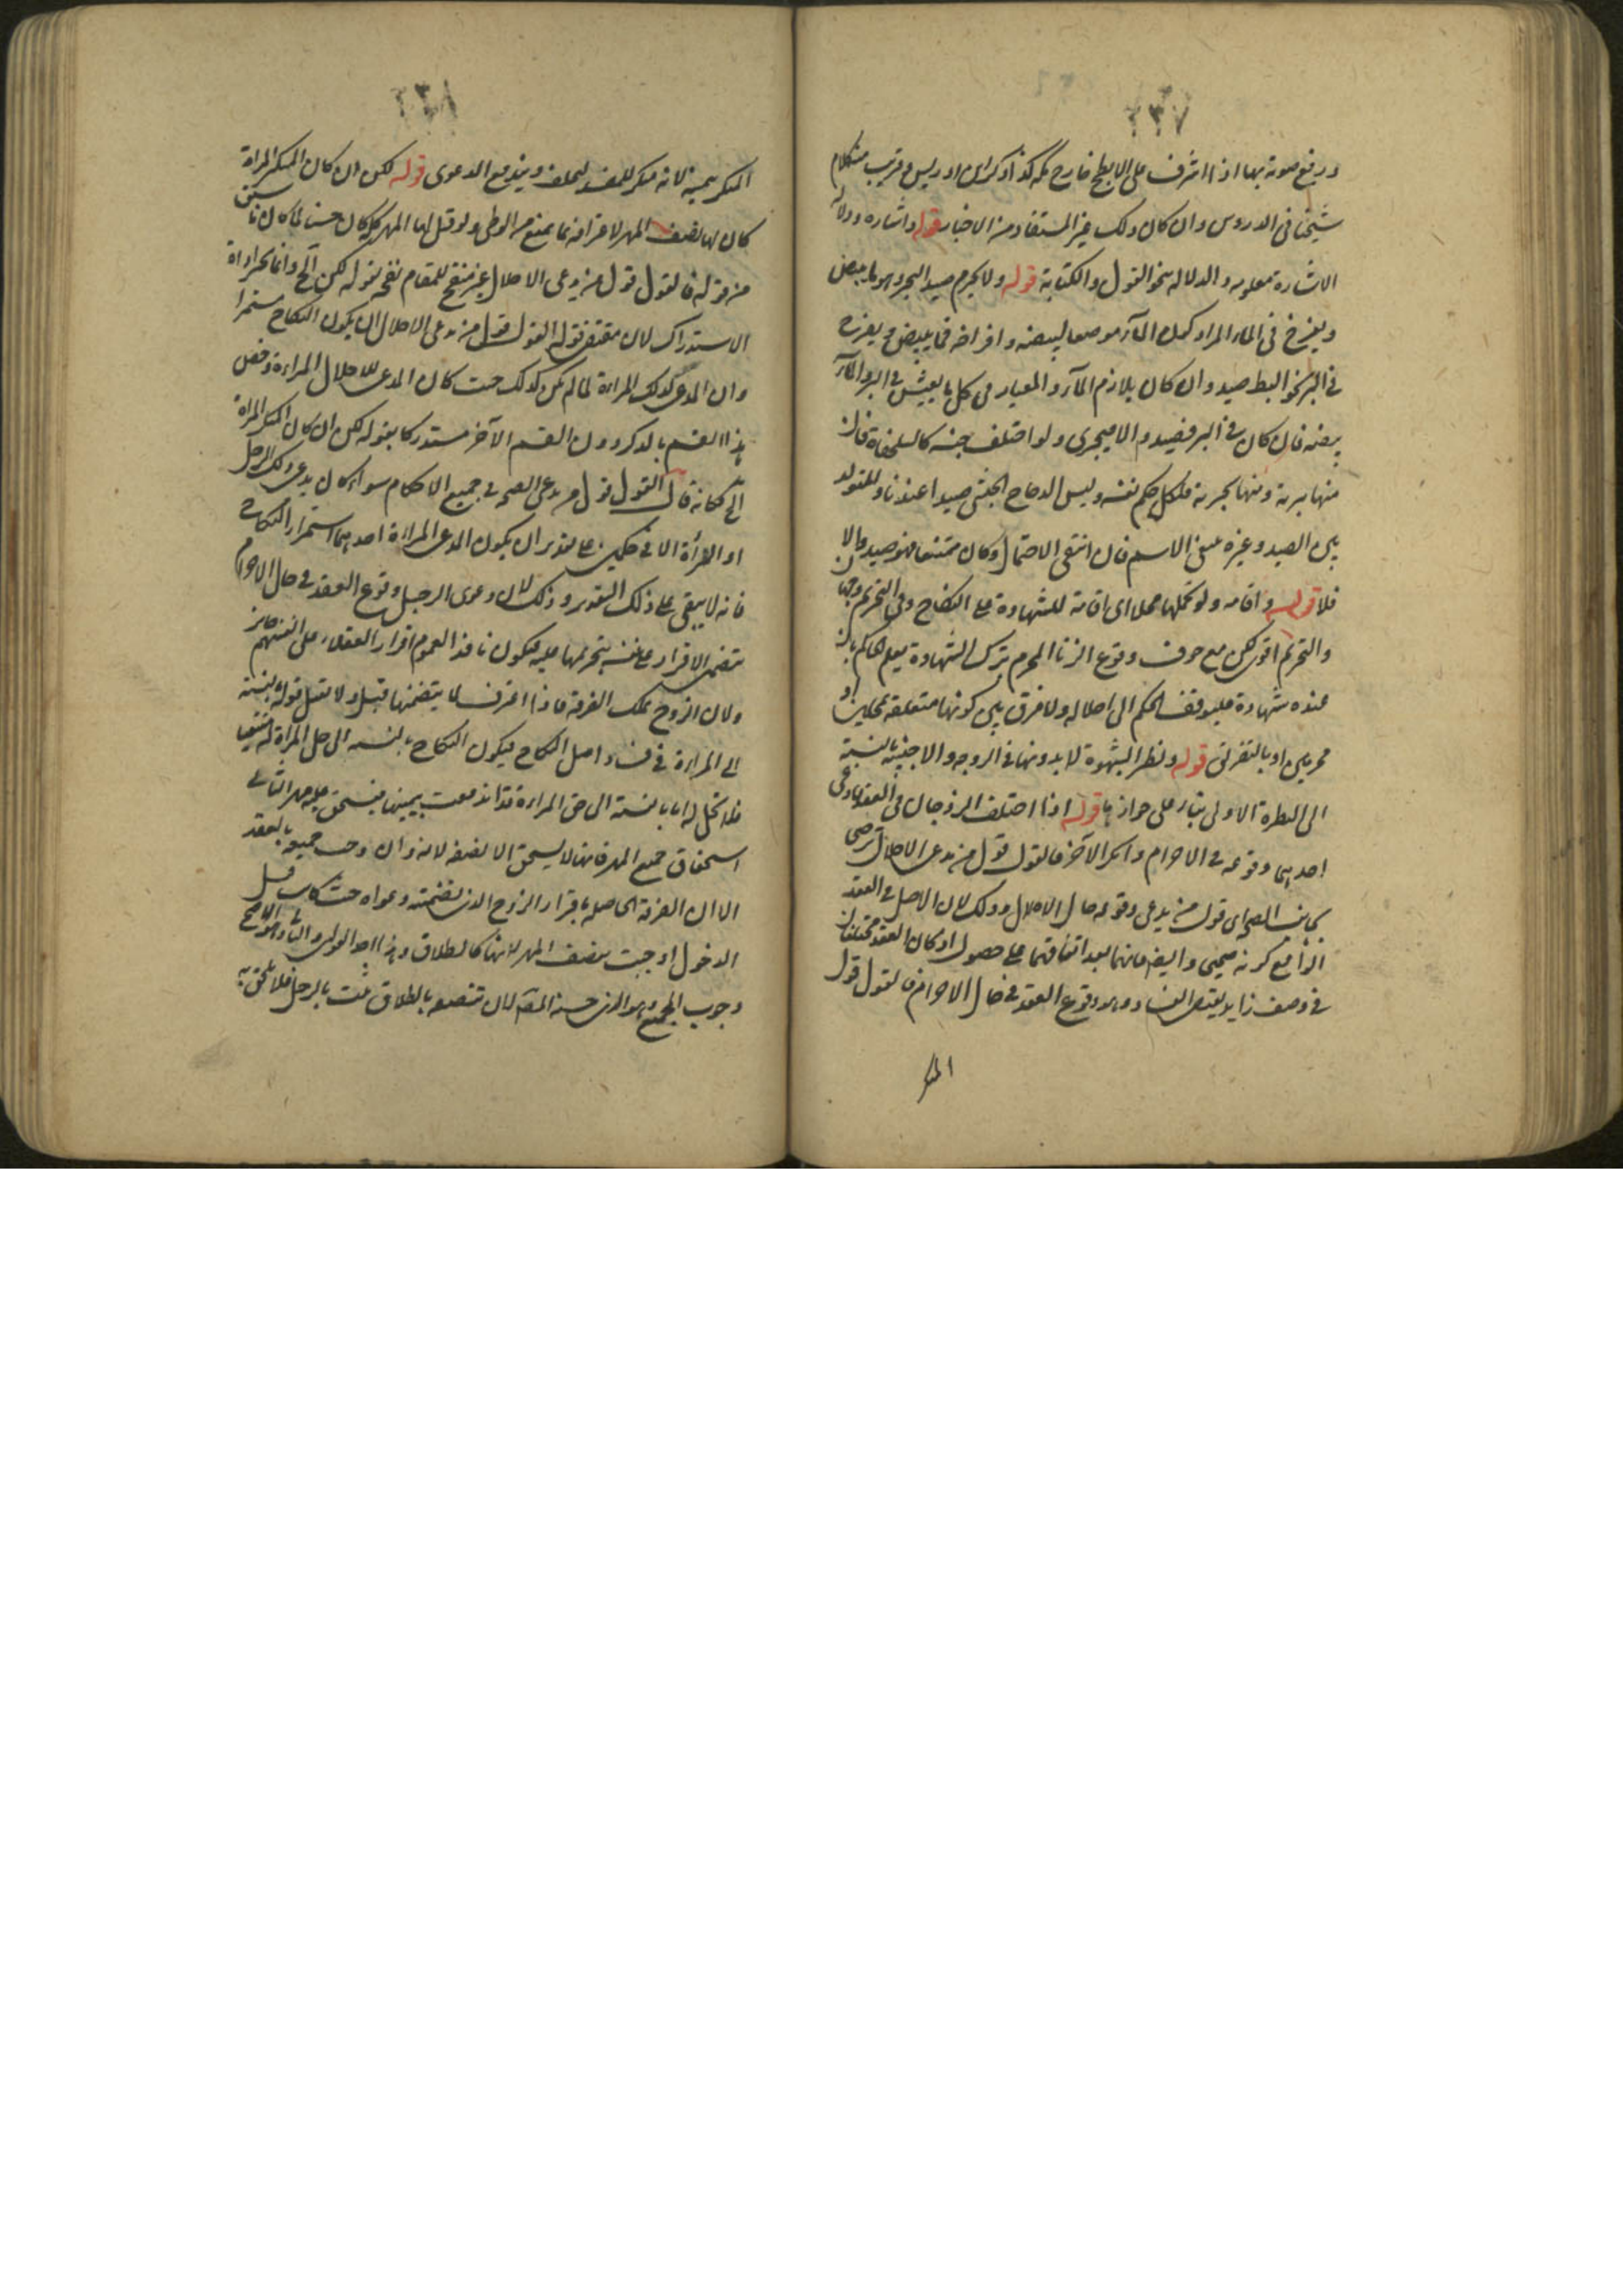 ٢٣٧
ويرفع صوته بها اذا اشرف على الابطح خارج مكة كذا ذكر ابن ادريس وقريب منه كلام
شيخنا في الدروس وان كان ذلك غير المستفاد من الاخبار قوله واشارة ودلالة
الاشارة معلومة والدلالة بنحو القول والكتابة قوله ولا يحرم صيد البحر وهو ما يبيض
ويفرخ في الماء المراد كون الماء موضعا لبيضه وافراخه فما يبيض ويفرخ
في البر نحو البط صيد وان كان يلازم الماء والمعيار في كل ما يعيش في البر والماء
بيضه فان كان في البر فصيد والا فبحري ولو اختلف جنسه كالسلحفاة فان
منها برية ومنها بحرية فلكل حكم نفسه وليس الدجاج الحبشي صيدا عندنا والمتولد
بين الصيد وغيره يتبع الاسم فان انتفى الاحتمال وكان ممتنعا فهو صيد والا
فلا قوله واقامه ولو تحملها محلا اي اقامة للشهادة على النكاح وفي التحريم وجها
والتحريم اقوى لكن مع خوف وقوع الزنا المحرم بترك الشهادة يعلم الحاكم بان
عنده شهادة فليوقف الحكم الى احلاله ولا فرق بين كونها متعلقة بمحلين او
محرمين او بالتفرق قوله ونظر الشهوة لا بدونها في الزوجة والاجنبية بالنسبة
الى النظرة الاولى بناء على جوازها قوله اذا اختلف الزوجان في العقد فادعى
احدهما وقوعه في الاحرام وانكر الآخر فالقول قول من يدعي الاحلال ترجيحا
لجانب الصحة اي قول من يدعي وقوعه حال الاحلال وذلك لان الاصل في العقد
الواقع كونه صحيحا وايضا فانهما بعد اتفاقهما على حصول اركان العقد مختلفان
في وصف زايد يقتضي الفساد وهو وقوع العقد في حال الاحرام فالقول قول
المنكر
٢٣٨
المنكر بيمينه لانه منكر للمفسد فيحلف ويندفع الدعوى قوله لكن ان كان المنكر المراة
كان لها نصف المهر لاعترافه بما يمنع من الوطي ولو قيل لها المهر كله كان حسنا لما كان ما سبق
من قوله فالقول قول من يدعي الاحلال غير منقح للمقام نقحه بقوله لكن الخ وانما اجراه اداة
الاستدراك لان مقتضى قوله القول قول من يدعي الاحلال ان يكون النكاح مستمرا
وان المدعي كذلك المراة لما لم يكن كذلك حيث كان المدعي للاحلال المراة وخص
هذا القسم بالذكر دون القسم الآخر مستدركا بقوله لكن ان كان المنكر المراة
الخ فكانه قال القول قول من يدعي الصحة في جميع الاحكام سواء كان يدعي ذلك الرجل
او المرأة الا في حكمين على تقدير ان يكون المدعي المراة احدهما استمرار النكاح
فانه لا يبقى على ذلك التقدير وذلك لان دعوى الرجل وقوع العقد في حال الاحرام
يتضمن الاقرار على نفسه بتحريمها عليه فيكون نافذا لعموم اقرار العقلاء على انفسهم جايز
ولان الزوج يملك الفرقة فاذا اعترف بما يتضمنها قبل ولا تقبل قوله بالنسبة
الى المراة في فساد اصل النكاح فيكون النكاح بالنسبة الى حل المراة له منتفيا
فلا تحل له اما بالنسبة الى حق المراة فنافذ معت بيمينها فيستحق عليه مهر الثاني
استحقاق جميع المهر فانها لا يستحق الا نصفه لانه وان وجب جميعه بالعقد
الا ان الفرقة الحاصلة باقرار الزوج الذي تضمنته دعواه حيث كانت قبل
الدخول اوجبت تنصف المهر لانها كالطلاق وهذا احد القولين والثاني وهو الاصح
وجوب الجميع وهو الذي حسنه المصـ لان تنصفه بالطلاق ثبت بالرجل فلا يلحق به